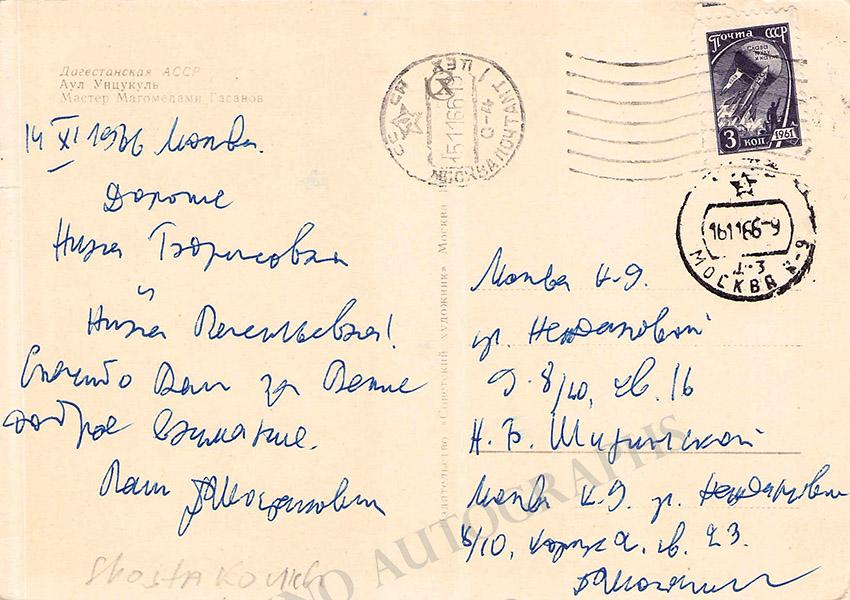 Дагестанская АССР
Аул Унцукуль
Мастер Магомедами Гасанов
14 XI 1966 Москва.
Дорогие
Нина Борисовна
и
Нина Васильевна!
Спасибо Вам за Ваше
доброе внимание.
Ваш ДШостакович
Shostakovich
«Советский художник» Москва
СССР
МОСКВА ПОЧТАМТ
ЦЕХ
151166
Почта СССР
3 коп
1961
161166-9
МОСКВА К-9
Москва К-9.
ул. Неждановой
д. 8/10, кв. 16
Н. Б. Ширинской
Москва К-9. ул. Неждановой
8/10, кв. 23.
ДШостакович
AUTOGRAPHS